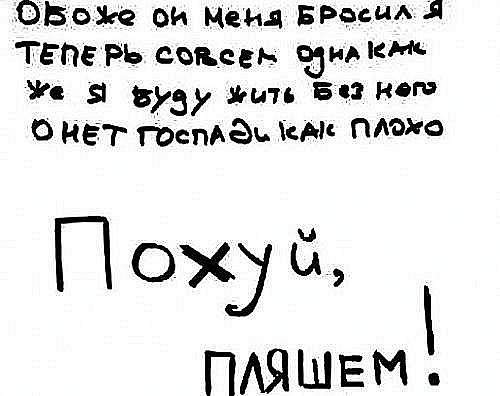 О боже он меня бросил я
теперь совсем одна как
же я буду жить без него
о нет господи как плохо
Похуй,
пляшем!